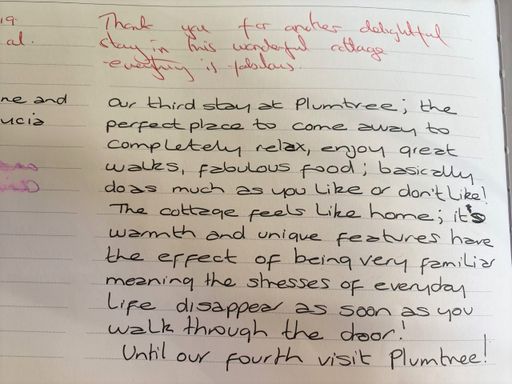 19.
al.
Thank you for another delightful
stay in this wonderful cottage
- everything is fabulous.
ne and
ucia
Our third stay at Plumtree; the
perfect place to come away to
completely relax, enjoy great
walks, fabulous food; basically
do as much as you like or don't like!
The cottage feels like home; it's
warmth and unique features have
the effect of being very familiar
meaning the stresses of everyday
life disappear as soon as you
walk through the door!
Until our fourth visit Plumtree!